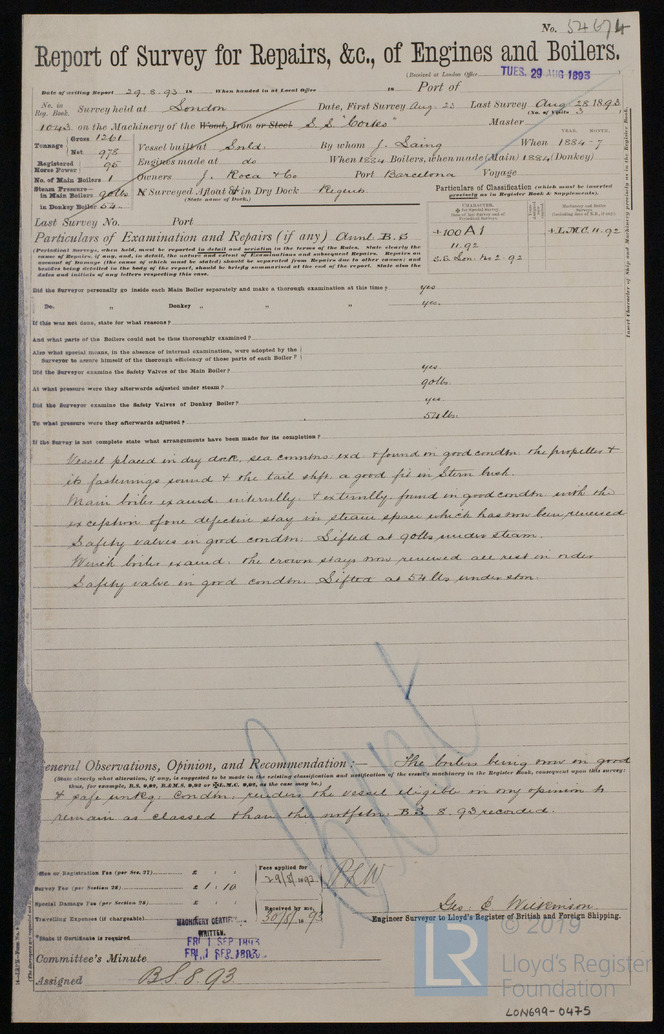 No. 54674
Report of Survey for Repairs, &c., of Engines and Boilers.
(Received at London Office TUES. 29 AUG 1893 )
Date of writing Report 29.8.93 18 When handed in at Local Office 18 Port of
No. in Reg. Book. Survey held at London Date, First Survey Aug 23 Last Survey Aug 28 1893
(No. of Visits 3 )
1043 on the Machinery of the Wood, Iron or Steel S.S. "Cortes" Master
Tonnage Gross 1261 Net 978
Vessel built at Snld. By whom J. Laing When 1884-7
YEAR. MONTH.
Registered Horse Power 95
Engines made at do When 1884 Boilers, when made (Main) 1884 (Donkey)
No. of Main Boilers 1
Owners J. Roca & Co Port Barcelona Voyage
Steam Pressure in Main Boilers 90lbs
in Donkey Boiler 54
If Surveyed Afloat or in Dry Dock Regents
(State name of Dock.)
Particulars of Classification (which must be inserted precisely as in Register Book & Supplements).
CHARACTER.
+100A1
11.92
S.S. Lon. No 2. 92
+L.M.C. 11.92
Insert Character of Ship and Machinery precisely as in the Register Book.
Last Survey No. Port
Particulars of Examination and Repairs (if any) Annl. B.S
(Periodical Surveys, when held, must be reported in detail and seriatim in the terms of the Rules. State clearly the cause of Repairs, if any, and, in detail, the nature and extent of Examinations and subsequent Repairs. Repairs on account of Damage (the cause of which must be stated) should be separated from Repairs due to other causes; and besides being detailed in the body of the report, should be briefly summarised at the end of the report. State also the dates and initials of any letters respecting this case.
Did the Surveyor personally go inside each Main Boiler separately and make a thorough examination at this time? yes
Do. " Donkey " " " yes.
If this was not done, state for what reasons?
And what parts of the Boilers could not be thus thoroughly examined?
Also what special means, in the absence of internal examination, were adopted by the Surveyor to assure himself of the thorough efficiency of those parts of each Boiler?
Did the Surveyor examine the Safety Valves of the Main Boiler? yes
At what pressure were they afterwards adjusted under steam? 90lbs.
Did the Surveyor examine the Safety Valves of Donkey Boiler? yes
To what pressure were they afterwards adjusted? 54lbs.
If the Survey is not complete state what arrangements have been made for its completion?
Vessel placed in dry dock, sea conntns: exd: & found in good condtn the propeller &
its fastenings sound & the tail shft. a good fit in Stern bush.
Main boiler examd: internally & externally found in good condtn with the
exception of one defective stay in steam space which has now been renewed
Safety valves in good condtn: Lifted at 90lbs under steam.
Winch boiler examd: the crown stays now renewed all rest in order
Safety valve in good condtn: Lifted at 54 lbs under stm.
General Observations, Opinion, and Recommendation:— The boilers being now in good
(State clearly what alteration, if any, is suggested to be made in the existing classification and notification of the vessel's machinery in the Register Book, consequent upon this survey: thus, for example, B.S. 9,92, B.&M.S. 9,92 or +L.M.C. 9,92, as the case may be.)
& safe wrkg: condtn: renders the vessel eligible in my opinion to
remain as classed & have the notfctn: B.S. 8.93 recorded.
Certification or Registration Fee (per Sec. 27) £
Survey Fee (per Section 28) £ 1 . 10
Special Damage Fee (per Section 28) £
Travelling Expenses (if chargeable) £
Fees applied for 29/8/1893
Received by me, 30/8/1893
Geo. E. Wilkinson
Engineer Surveyor to Lloyd's Register of British and Foreign Shipping.
*State if Certificate is required
MACHINERY CERTIFICATE WRITTEN.
FRI 1 SEP 1893
FRI. 1 SEP. 1893
Committee's Minute
Assigned BS. 8.93
© 2019
LR
Lloyd's Register
Foundation
LON699-0475